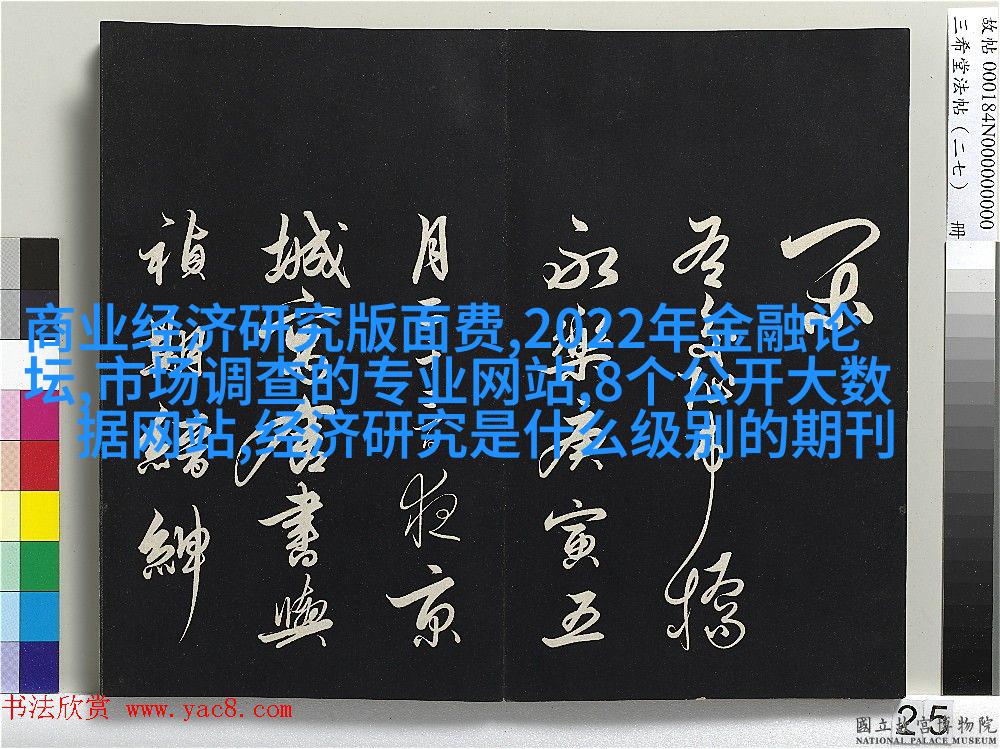 故帖 000184N000000000
三希堂法帖(二七) 冊
永樂庚寅五
夜京
城寓舍書與
禎期縉紳
商业经济研究版面费,2022年金融论
坛,市场调查的专业网站,8个公开大数
据网站,经济研究是什么级别的期刊
书法欣赏 www.yac8.com
25
國立故宮博物院
NATIONAL PALACE MUSEUM